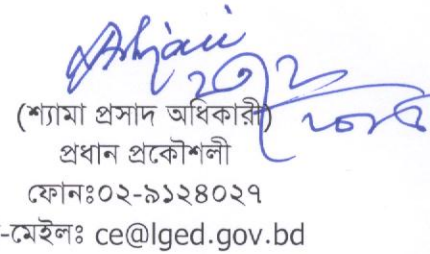 (শ্যামা প্রসাদ অধিকারী)
প্রধান প্রকৌশলী
ফোনঃ০২-৯১২৪০২৭
-মেইলঃ ce@lged.gov.bd